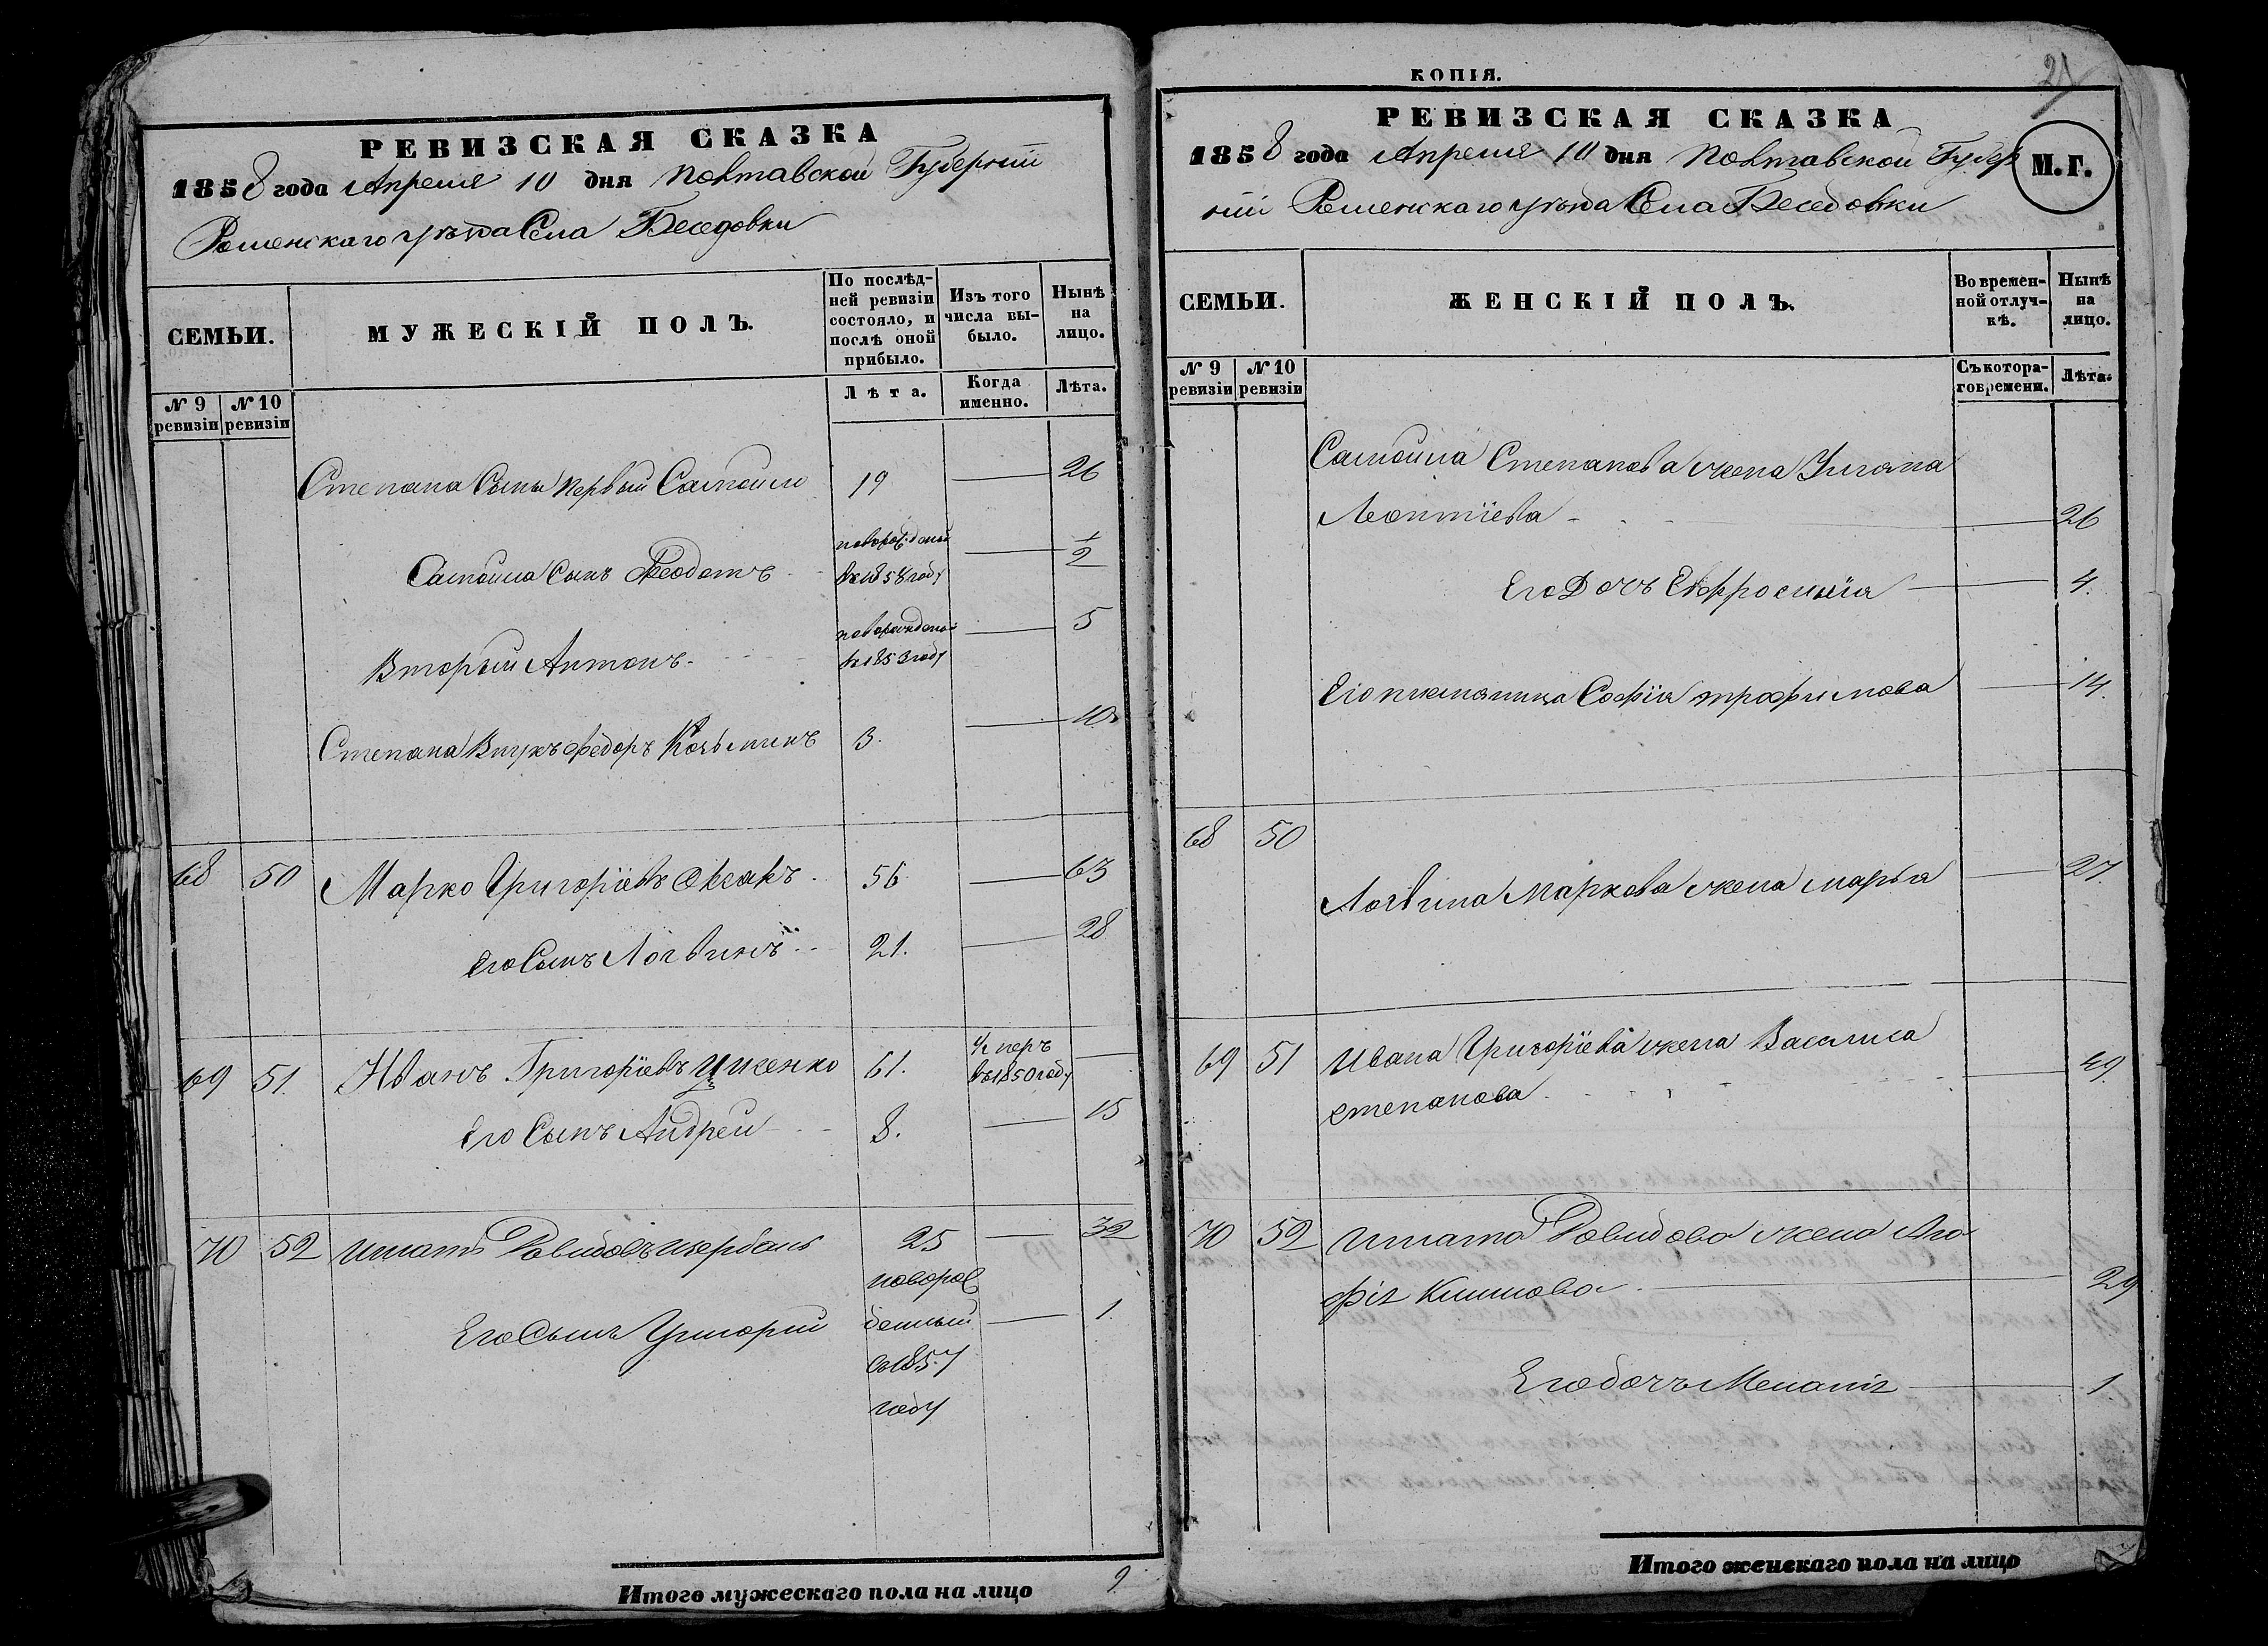 РЕВИЗСКАЯ СКАЗКА
1858 года Апреля 10 дня Полтавской Губернии
Роменскаго уѣзда Села Беседовки
СЕМЬИ.
МУЖЕСКІЙ ПОЛЪ.
По послѣд-
ней ревизіи
состояло, и
послѣ оной
прибыло.
Изъ того
числа вы-
было.
Нынѣ
на
лицо.
№ 9
ревизіи
№ 10
ревизіи
Лѣта.
Когда
именно.
Лѣта.
Степана Сыны первый Самойло 19 26
Самойла Сынъ Феодотъ
въ 1858 году
1/2
Вторый Антонъ
въ 1853 году
5
Степана Внукъ Федоръ Козьминъ 3. 10
68 50 Марко Григоріевъ 56 63
его Сынъ Логвинъ 21. 28
69 51. Иванъ Григоріевъ 61.
въ 1850 году
Его Сынъ Андрей 8. 15
70 52 Игнатъ Давидовъ Щербань 25 32
новорож
денный
въ 1857
году
Его Сынъ Григорий 1.
Итого мужескаго пола на лицо 9
КОПІЯ.
РЕВИЗСКАЯ СКАЗКА
1858 года Апреля 10 дня Полтавской Губер
нии Роменскаго уѣзда Села Беседовки
М.Г.
СЕМЬИ.
ЖЕНСКІЙ ПОЛЪ.
Во времен-
ной отлуч-
кѣ.
Нынѣ
на
лицо.
№ 9
ревизіи
№ 10
ревизіи
Съ котора-
го времени.
Лѣта.
Самойла Степанова жена Улияна
Леонтіева 26
Его Дочъ Евфросинія 4.
Его племяница Софія Трофимова 14.
68 50
Логвина Маркова жена Марья 27.
69 51 Ивана Григоріева жена Василиса
Степанова 49.
70 52 Игната Давидова жена Ага
фія Климова 29
Его дочъ Меланія 1.
Итого женскаго пола на лицо